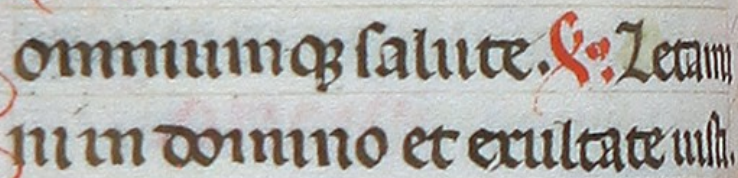 omniumq3 salute. ℣. Letami
ni in domino et exultate iusti.